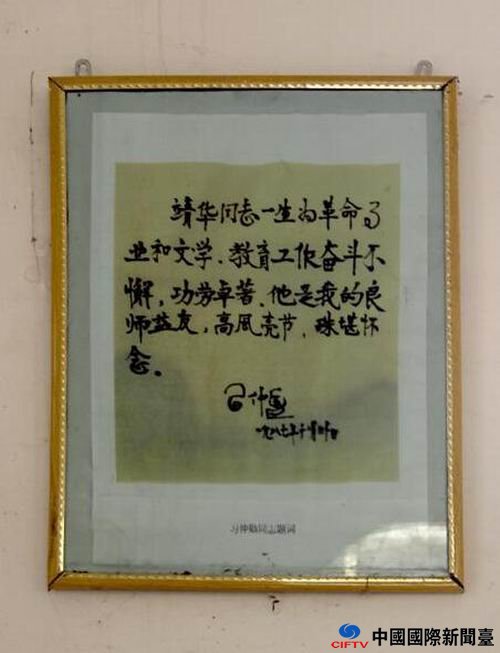 靖华同志一生为革命事
业和文学、教育工作奋斗不
懈，功劳卓著、他是我的良
师益友，高風亮节、殊堪怀
念。
习仲勋
一九八七年十月
习仲勋同志题词
CIFTV 中國國際新聞臺